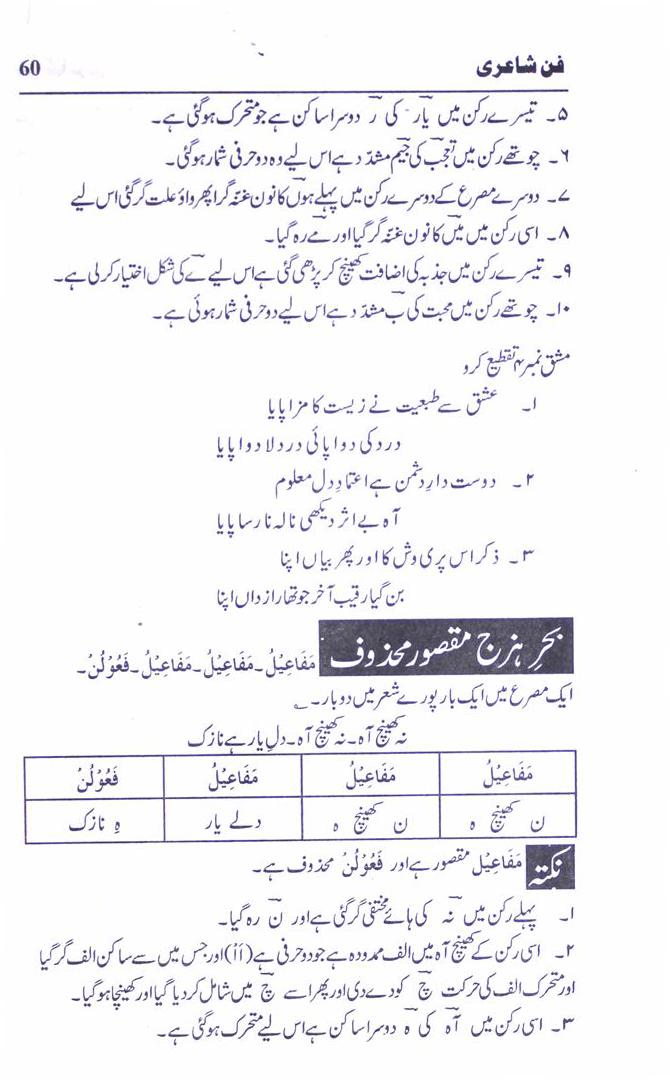 فن شاعری 60
۵۔ تیسرے رکن میں یار کی ر دوسرا ساکن ہے جو متحرک ہوگئی ہے۔
۶۔ چوتھے رکن میں تعجب کی جیم مشدّد ہے اس لیے وہ دو حرفی شمار ہوگئی۔
۷۔ دوسرے مصرع کے دوسرے رکن میں پہلے ہوں کا نون غنّہ گرا پھر واؤ علت گر گئی اس لیے
۸۔ اسی رکن میں میں کا نون غنّہ گر گیا اور مے رہ گیا۔
۹۔ تیسرے رکن میں جذبہ کی اضافت کھینچ کر پڑھی گئی ہے اس لیے ے کی شکل اختیار کرلی ہے۔
۱۰۔ چوتھے رکن میں محبت کی ب مشدّد ہے اس لیے دو حرفی شمار ہوئی ہے۔
مشق نمبر ۴ تقطیع کرو
۱۔ عشق سے طبعیت نے زیست کا مزا پایا
درد کی دوا پائی درد لا دوا پایا
۲۔ دوست دارِ دشمن ہے اعتمادِ دل معلوم
آہ بے اثر دیکھی نالہ نارسا پایا
۳۔ ذکر اس پری وش کا اور پھر بیاں اپنا
بن گیا رقیب آخر جو تھا رازداں اپنا
بحرِ ہزج مقصور محذوف مَفَاعِیْلُ۔ مَفَاعِیْلُ۔ مَفَاعِیْلُ۔ فَعُوْلُنْ۔
ایک مصرع میں ایک بار پورے شعر میں دو بار۔
نہ کھینچ آہ۔ نہ کھینچ آہ۔ دلِ یار ہے نازک
مَفَاعِیْلُ مَفَاعِیْلُ مَفَاعِیْلُ فَعُوْلُنْ
ن کھینچ ہ ن کھینچ ہ دلے یار ہِ نازک
نکتہ مَفَاعِیْل مقصور ہے اور فَعُوْلُنْ محذوف ہے۔
۱۔ پہلے رکن میں نہ کی ہائے مختفی گر گئی ہے اور ن رہ گیا۔
۲۔ اسی رکن کے کھینچ آہ میں الف ممدودہ ہے جو دو حرفی ہے (اَاْ) اور جس میں سے ساکن الف گر گیا
اور متحرک الف کی حرکت چ کو دے دی اور پھر اسے چ میں شامل کر دیا گیا اور کھینچا ہوگیا۔
۳۔ اسی رکن میں آہ کی ہ دوسرا ساکن ہے اس لیے متحرک ہوگئی ہے۔